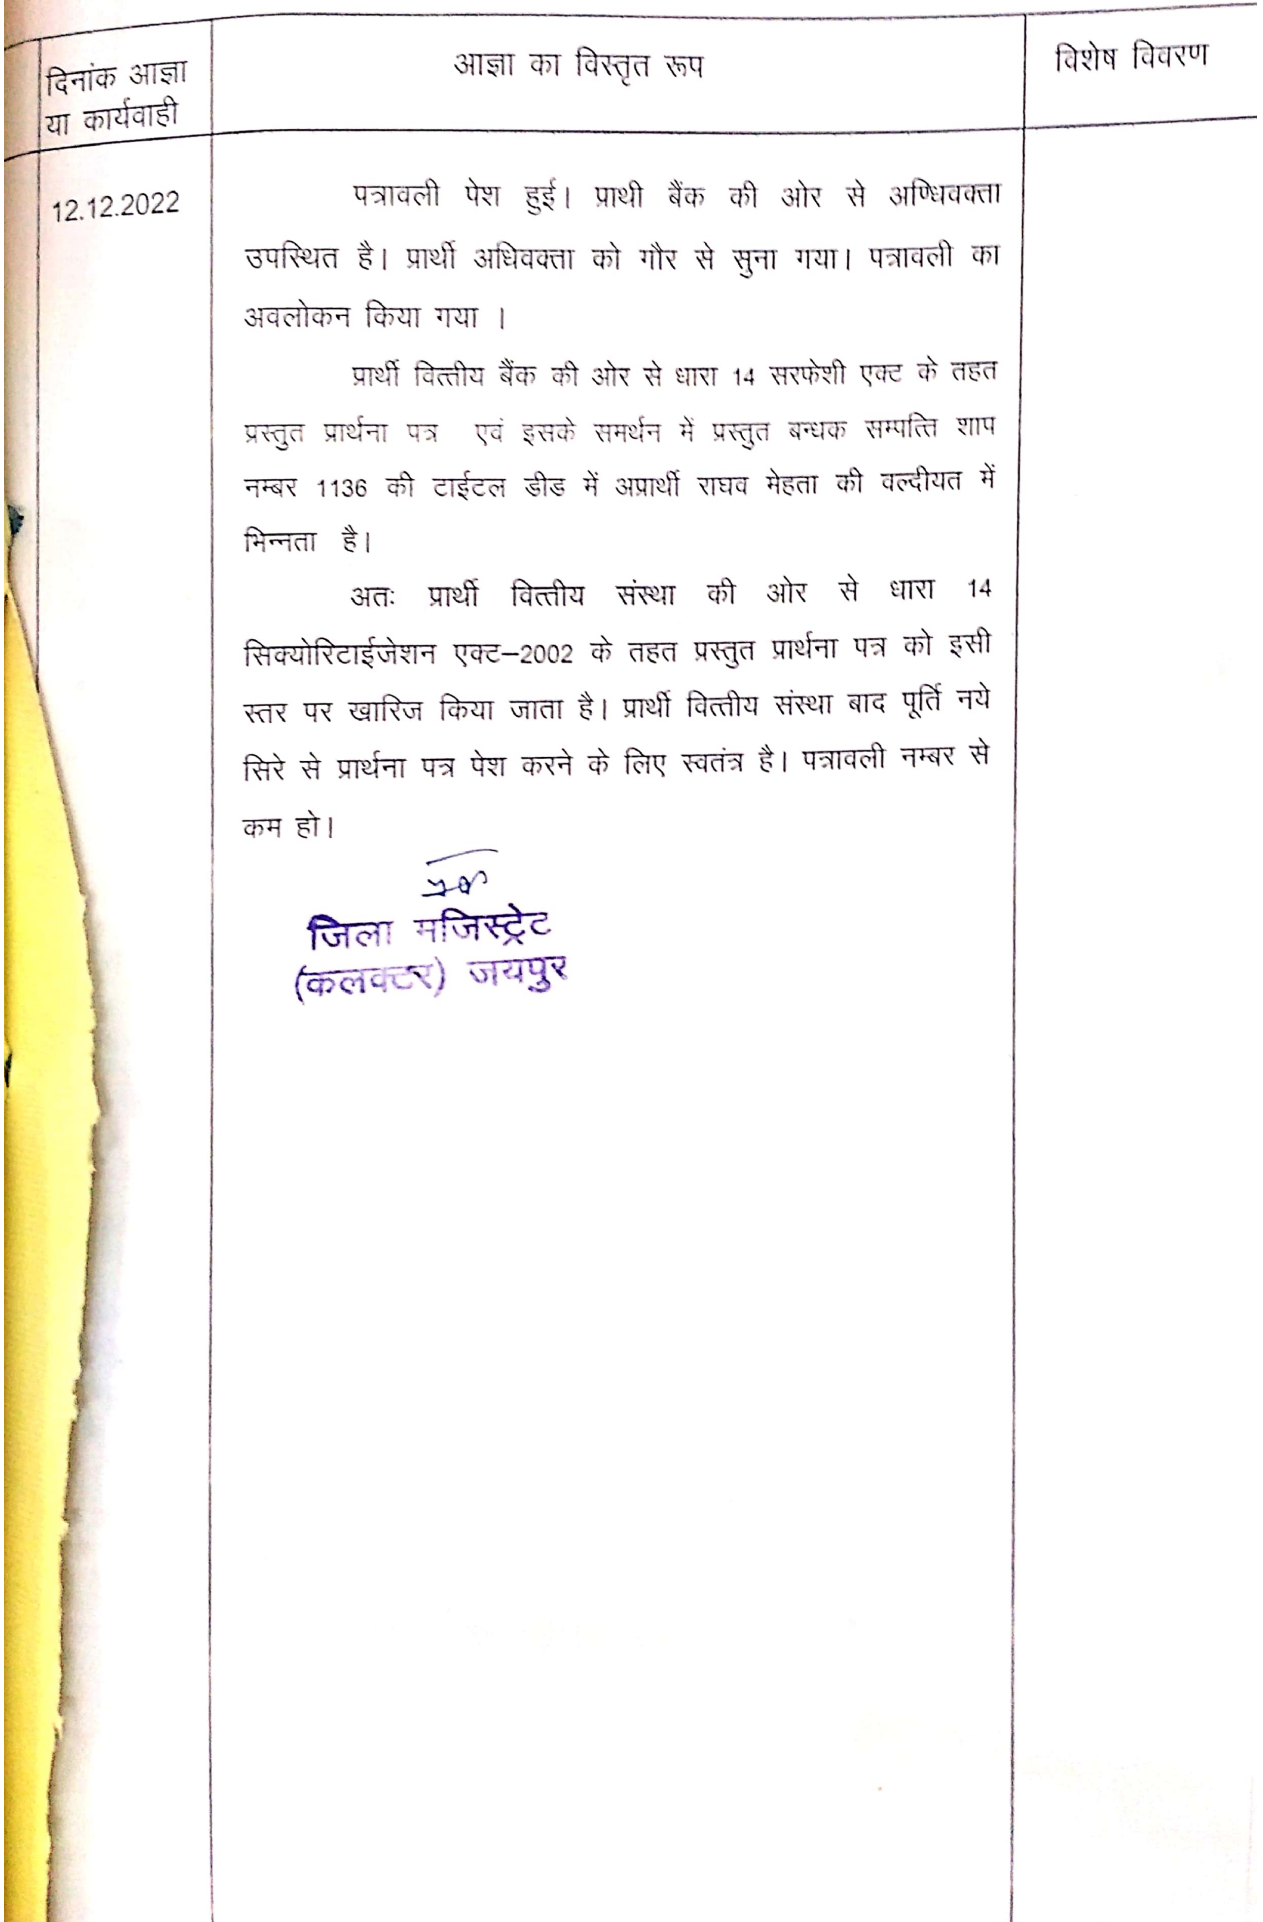 दिनांक आज्ञा
या कार्यवाही
आज्ञा का विस्तृत रूप
विशेष विवरण
12.12.2022
पत्रावली पेश हुई। प्राथी बैंक की ओर से अण्धिवक्ता
उपस्थित है। प्रार्थी अधिवक्ता को गौर से सुना गया। पत्रावली का
अवलोकन किया गया ।
प्रार्थी वित्तीय बैंक की ओर से धारा 14 सरफेशी एक्ट के तहत
प्रस्तुत प्रार्थना पत्र एवं इसके समर्थन में प्रस्तुत बन्धक सम्पत्ति शाप
नम्बर 1136 की टाईटल डीड में अप्रार्थी राघव मेहता की वल्दीयत में
भिन्नता है।
अतः प्रार्थी वित्तीय संस्था की ओर से धारा 14
सिक्योरिटाईजेशन एक्ट–2002 के तहत प्रस्तुत प्रार्थना पत्र को इसी
स्तर पर खारिज किया जाता है। प्रार्थी वित्तीय संस्था बाद पूर्ति नये
सिरे से प्रार्थना पत्र पेश करने के लिए स्वतंत्र है। पत्रावली नम्बर से
कम हो।
जिला मजिस्ट्रेट
(कलक्टर) जयपुर